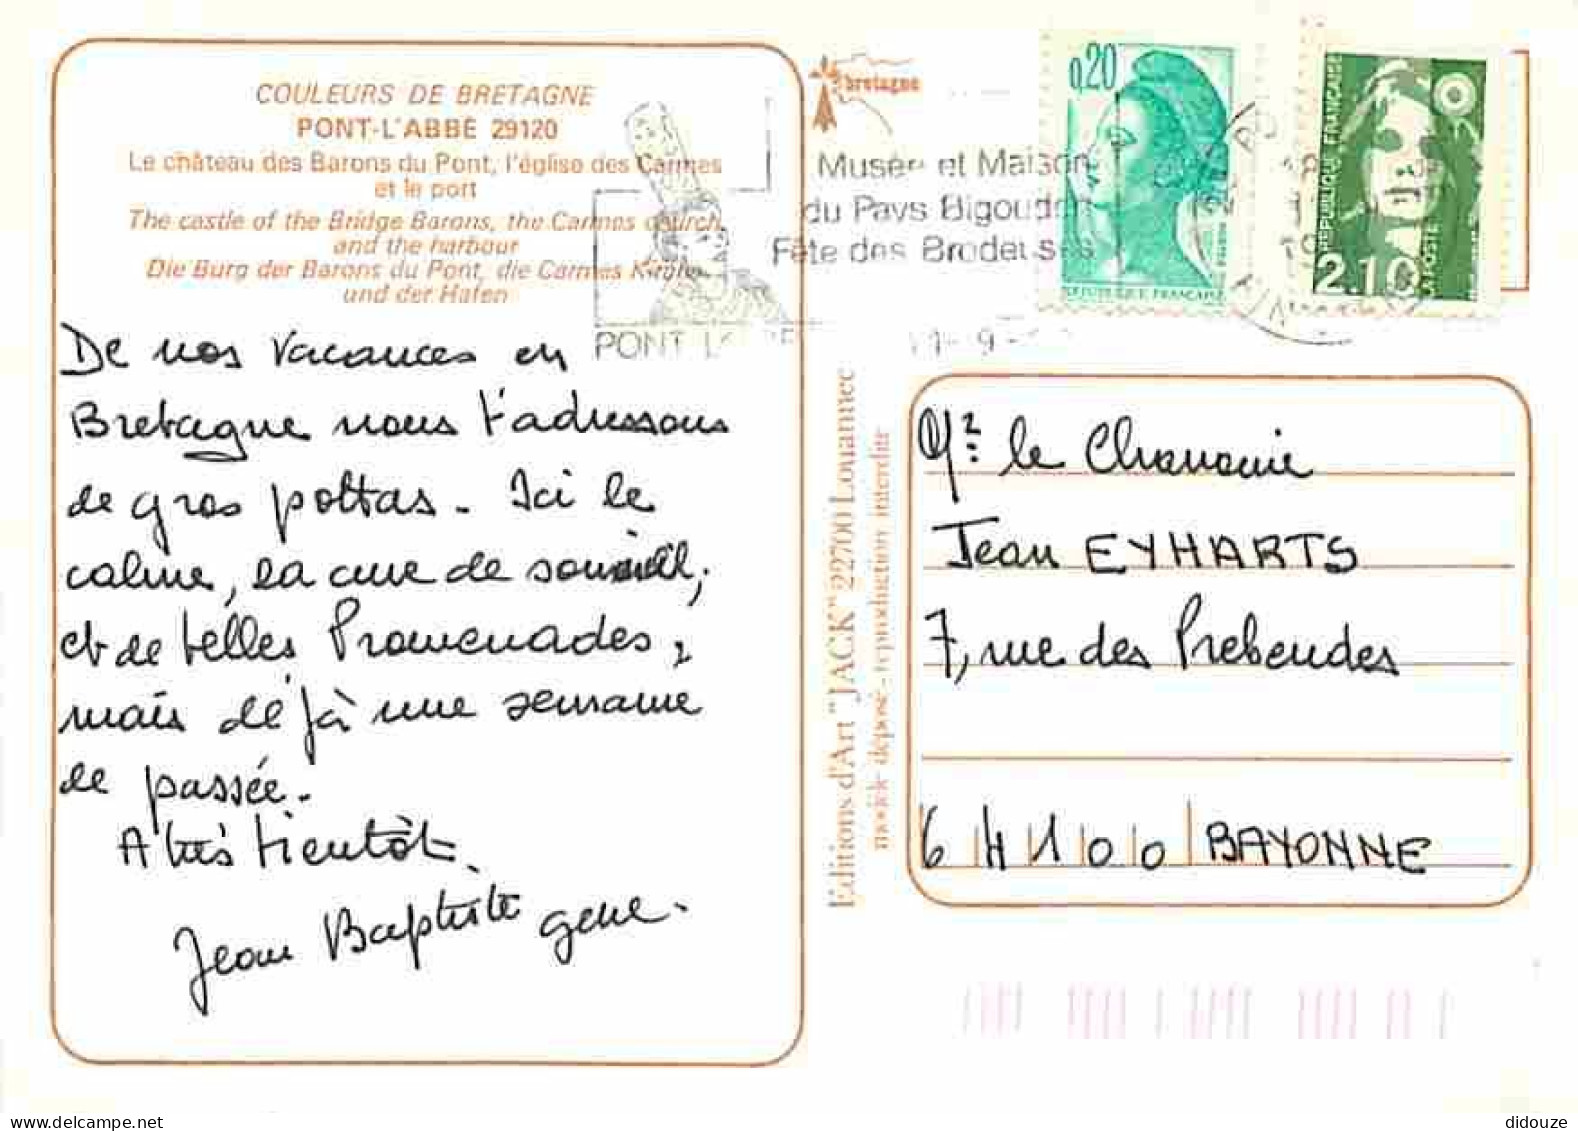 COULEURS DE BRETAGNE
PONT-L'ABBÉ 29120
Le château des Barons du Pont, l'église des Carmes
et le port
The castle of the Bridge Barons, the Carmes church
and the harbour
Die Burg der Barons du Pont, die Carmes Kirche
und der Hafen
De nos vacances en
Bretagne nous t'adressons
de gros pottas. Ici le
calme, la cure de sommeil,
et de belles Promenades,
mais déjà une semaine
de passée.
A très bientôt.
Jean Baptiste gene.
bretagne
Musée et Maison
du Pays Bigouden
Fête des Brodeuses
PONT L'
1-9-
0,20
RÉPUBLIQUE FRANÇAISE
RÉPUBLIQUE FRANÇAISE
2,10
LA POSTE
Editions d'Art "JACK" 22700 Louannec
modèle déposé - reproduction interdite
Mr. le Chanoine
Jean EYHARTS
7, rue des Prebendes
64100 BAYONNE
didouze